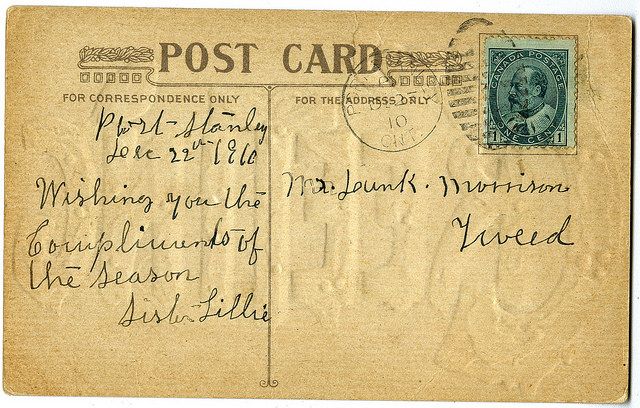 POST CARD
FOR CORRESPONDENCE ONLY
FOR THE ADDRESS ONLY
Port Stanley
Dec 22nd 1910
Wishing you the
Compliments of
the season
Sister Lillie
Mr. Morrison
Tweed
CANADA POSTAGE
1 ONE CENT 1
10
ONT